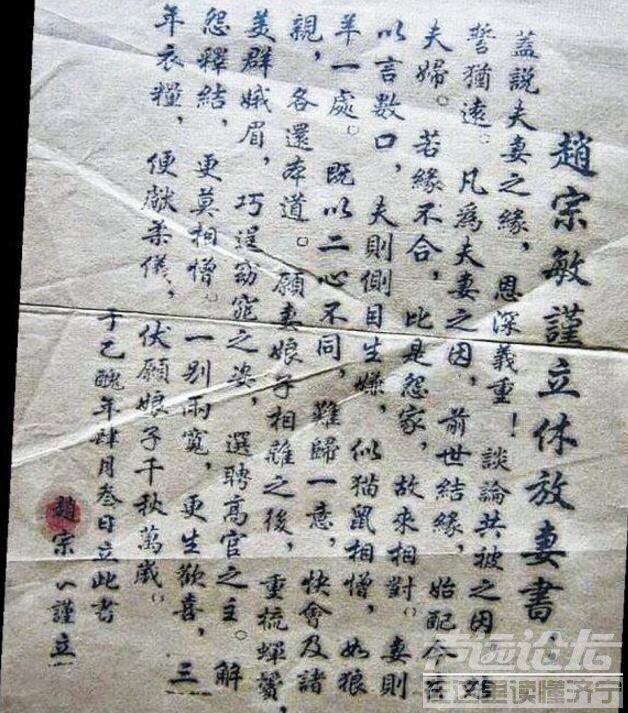 趙宗敏謹立休放妻書：
蓋說夫妻之緣，恩深義重！談論共被之因，
誓猶遠。凡為夫妻之因，前世結緣，始配今
夫婦。若緣不合，比是怨家，故來相對。妻則
以言數口，夫則側目生嫌，似猫鼠相憎，如狼
羊一處。既以二心不同，難歸一意，快會及諸
親，各還本道。願妻娘子相離之後，重梳蟬鬢，
美群娥眉，巧逞窈窕之姿，選聘高官之主。解
怨釋結，更莫相憎。一別兩寬，更生歡喜，三
年衣糧，便獻柔儀，伏願娘子千秋萬歲。
于乙醜年肆月叁日立此書
趙宗 謹立
论坛
在这里读懂济宁